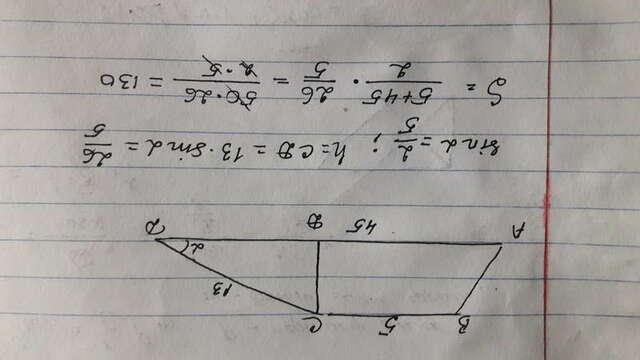 B 5 C
13
α D
A 45 D
sin α = 2/5 ; h = CD = 13 · sin α = 26/5
S = (5+45)/2 · 26/5 = (50 · 26)/(2 · 5) = 130